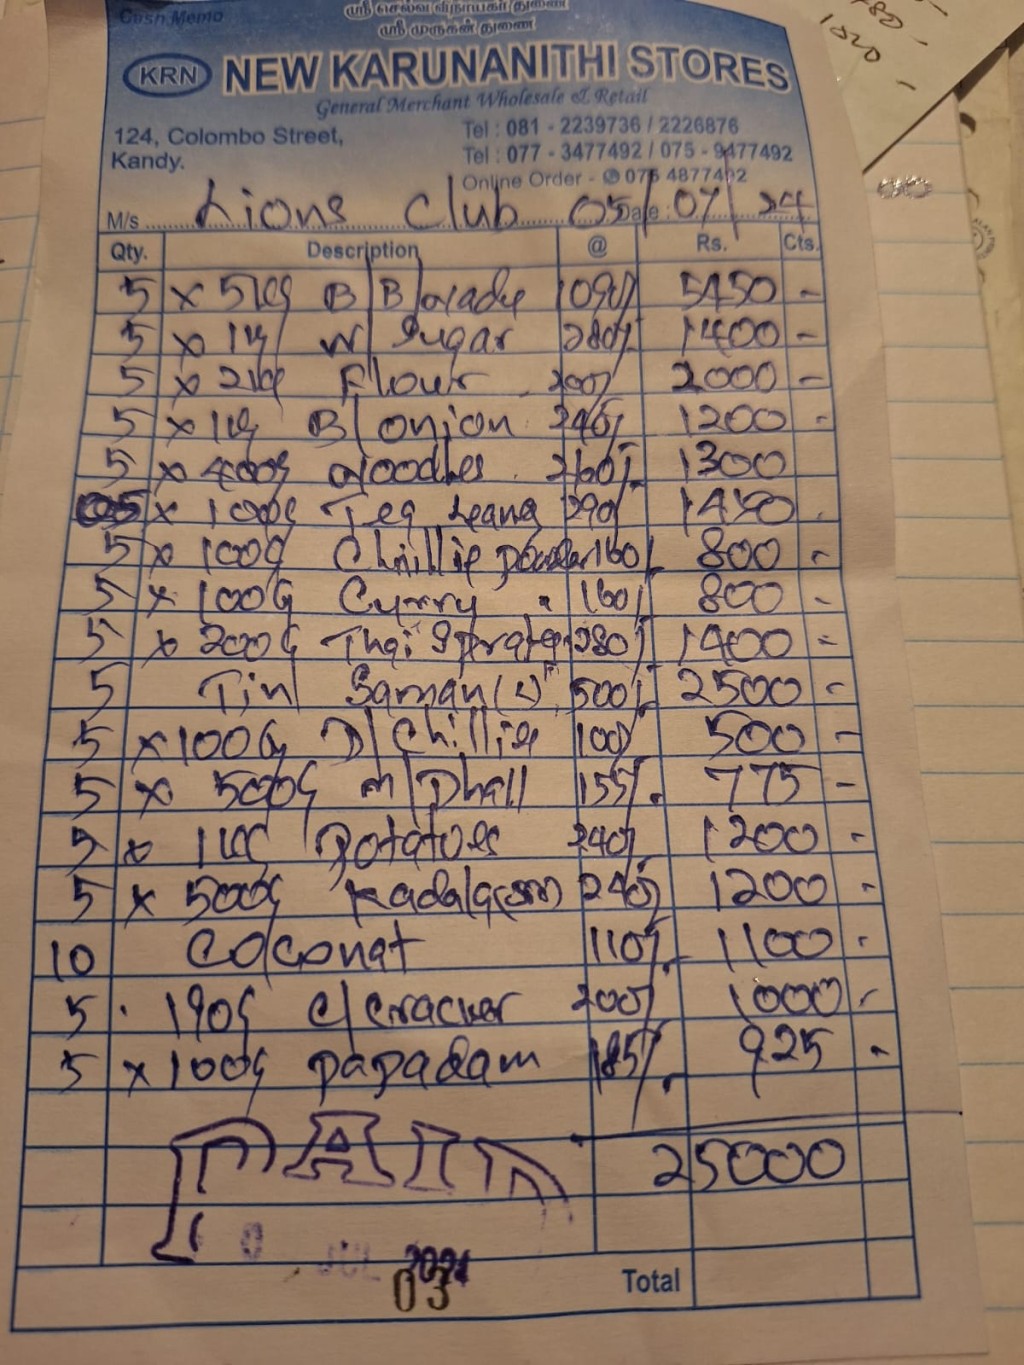 Cash Memo
ஸ்ரீ செல்வ விநாயகர் துணை
ஸ்ரீ முருகன் துணை
KRN NEW KARUNANITHI STORES
General Merchant Wholesale & Retail
124, Colombo Street,
Kandy.
Tel : 081 - 2239736 / 2226876
Tel : 077 - 3477492 / 075 - 9477492
Online Order - 075 4877492
M/s Lions Club Date : 05/07/24
Qty. Description @ Rs. Cts.
5 x 5kg B/B 1090/ 5450 -
5 x 1kg W/ Sugar 280/ 1400 -
5 x 2kg Flour 200/ 2000 -
5 x 1kg B/ onion 240/ 1200 -
5 x 400g Noodles 260/ 1300
05 x 100g Tea 290/ 1450
5 x 100g Chillie 160/ 800 -
5 x 100G Curry " 160/ 800 -
5 x 200G Thai 280/ 1400 -
5 Tin Saman (L) 500/ 2500 -
5 x 100G D/ Chillie 100/ 500 -
5 x 500g m/Dhall 155/. 775 -
5 x 1kg Potatoes 240/ 1200 -
5 x 500g Kadala 240/ 1200 -
10 Coconat 110/. 1100 -
5 . 190g C/cracker 200/ 1000 -
5 x 100g papadam 185/. 925 -
25000
PAID
JUL 2024
03
Total
1020 -